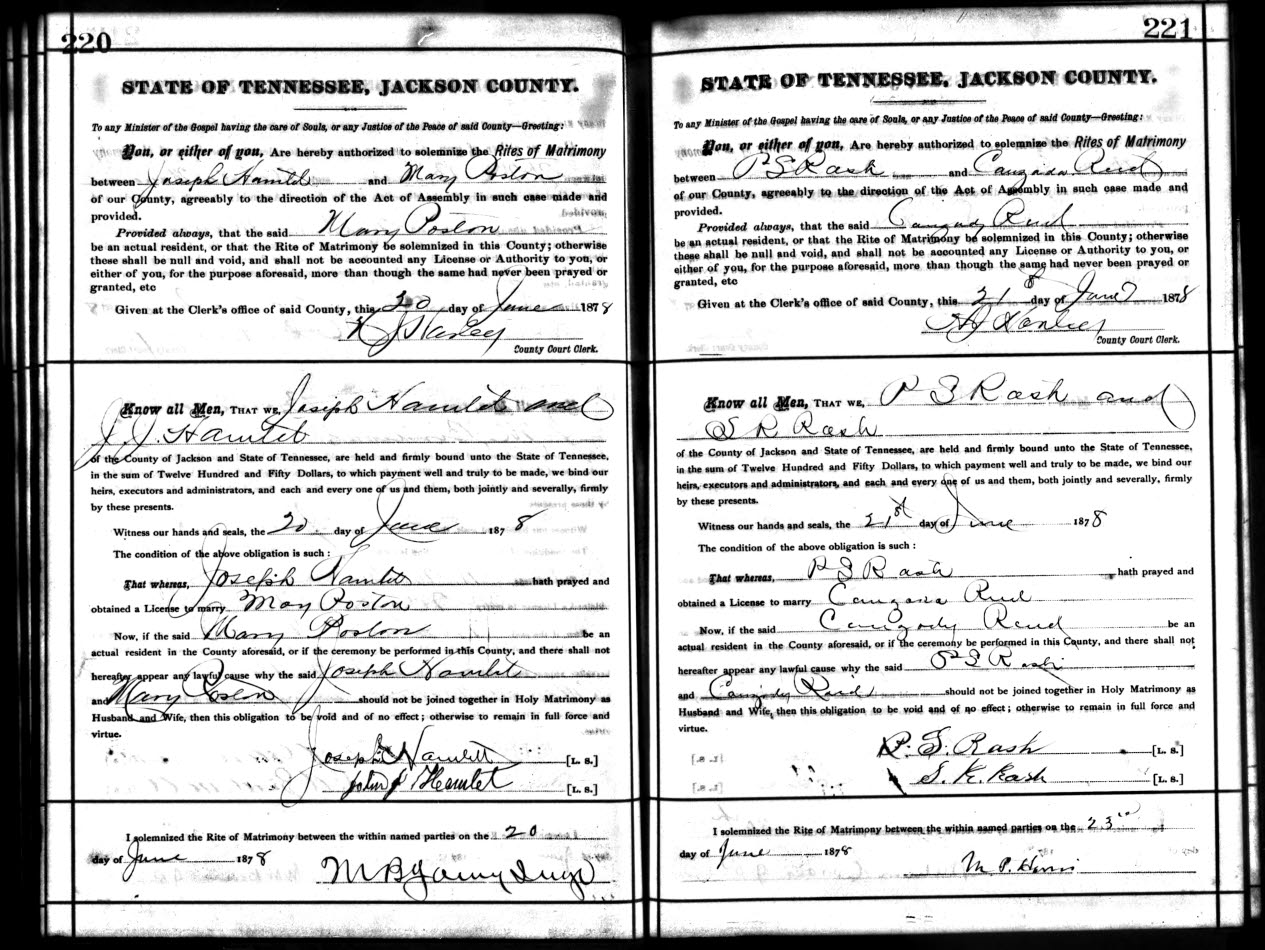 220
STATE OF TENNESSEE, JACKSON COUNTY.
To any Minister of the Gospel having the care of Souls, or any Justice of the Peace of said County—Greeting:
You, or either of you, Are hereby authorized to solemnize the Rites of Matrimony
between Joseph Hamlet and Mary Poston
of our County, agreeably to the direction of the Act of Assembly in such case made and
provided.
Provided always, that the said Mary Poston
be an actual resident, or that the Rite of Matrimony be solemnized in this County; otherwise
these shall be null and void, and shall not be accounted any License or Authority to you, or
either of you, for the purpose aforesaid, more than though the same had never been prayed or
granted, etc
Given at the Clerk's office of said County, this 20 day of June 1878
County Court Clerk.
Know all Men, THAT WE, Joseph Hamlet and
J. J. Hamlet
of the County of Jackson and State of Tennessee, are held and firmly bound unto the State of Tennessee,
in the sum of Twelve Hundred and Fifty Dollars, to which payment well and truly to be made, we bind our
heirs, executors and administrators, and each and every one of us and them, both jointly and severally, firmly
by these presents.
Witness our hands and seals, the 20 day of June 1878
The condition of the above obligation is such:
That whereas, Joseph Hamlet hath prayed and
obtained a License to marry Mary Poston
Now, if the said Mary Poston be an
actual resident of the County aforesaid, or if the ceremony be performed in this County, and there shall not
hereafter appear any lawful cause why the said Joseph Hamlet
and Mary Posten should not be joined together in Holy Matrimony as
Husband and Wife, then this obligation to be void and of no effect; otherwise to remain in full force and
virtue.
Joseph Hamlett [L. S.]
John J Hamlet [L. S.]
I solemnized the Rite of Matrimony between the within named parties on the 20
day of June 1878
221
STATE OF TENNESSEE, JACKSON COUNTY.
To any Minister of the Gospel having the care of Souls, or any Justice of the Peace of said County—Greeting:
You, or either of you, Are hereby authorized to solemnize the Rites of Matrimony
between P S Rash and Canzada Reid
of our County, agreeably to the direction of the Act of Assembly in such case made and
provided.
Provided always, that the said Canzady Reid
be an actual resident, or that the Rite of Matrimony be solemnized in this County; otherwise
these shall be null and void, and shall not be accounted any License or Authority to you, or
either of you, for the purpose aforesaid, more than though the same had never been prayed or
granted, etc
Given at the Clerk's office of said County, this 21st day of June 1878
County Court Clerk.
Know all Men, THAT WE, P S Rash and
S R Rash
of the County of Jackson and State of Tennessee, are held and firmly bound unto the State of Tennessee,
in the sum of Twelve Hundred and Fifty Dollars, to which payment well and truly to be made, we bind our
heirs, executors and administrators, and each and every one of us and them, both jointly and severally, firmly
by these presents.
Witness our hands and seals, the 21st day of June 1878
The condition of the above obligation is such:
That whereas, P S Rash hath prayed and
obtained a License to marry Canzada Reid
Now, if the said Canzady Reid be an
actual resident of the County aforesaid, or if the ceremony be performed in this County, and there shall not
hereafter appear any lawful cause why the said P S Rash
and Canzady Reid should not be joined together in Holy Matrimony as
Husband and Wife, then this obligation to be void and of no effect; otherwise to remain in full force and
virtue.
P. S. Rash [L. S.]
S. K. Rash [L. S.]
I solemnized the Rite of Matrimony between the within named parties on the 23rd
day of June 1878